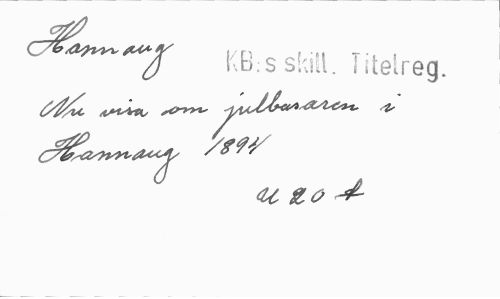 Hannaug
KB:s skill. Titelreg.
Nu visa om julbasaren i
Hannaug 1894
U 20